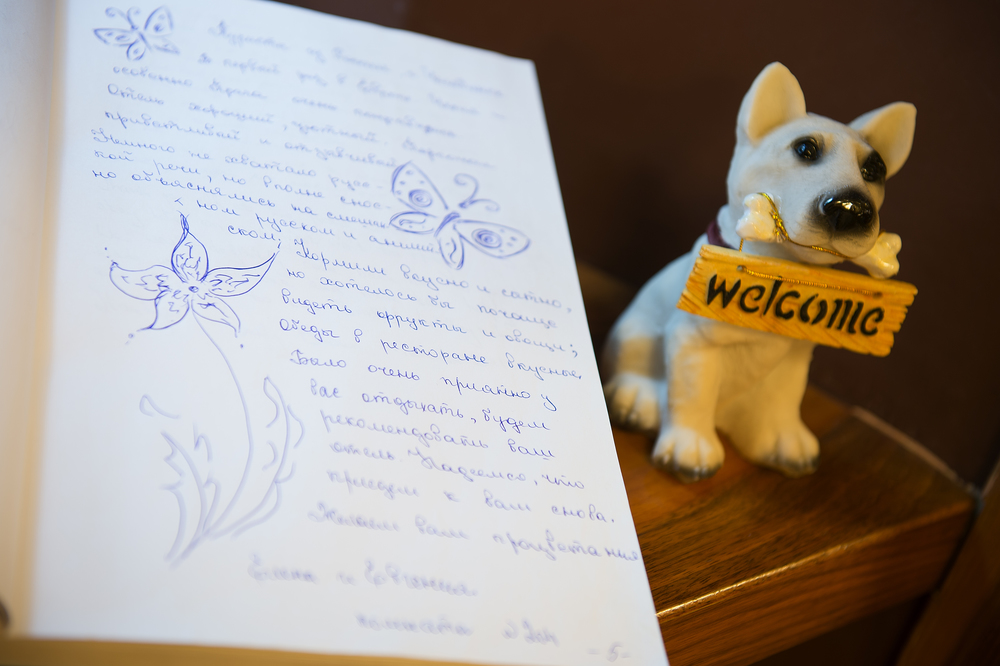 в первый раз в
особенно
Отель хороший, уютный.
приветливый и отзывчивый.
Немного не хватало русс-
кой речи, но вполне снос-
но объяснялись на смешан-
ном русском и английс-
ском. Кормили вкусно и сытно,
но хотелось бы почаще
видеть фрукты и овощи;
Обеды в ресторане вкусные.
Было очень приятно у
вас отдыхать, будем
рекомендовать ваш
отель. Надеемся, что
приедем к вам снова.
Желаем вам процветания
Елена и
комната
-5-
welcome